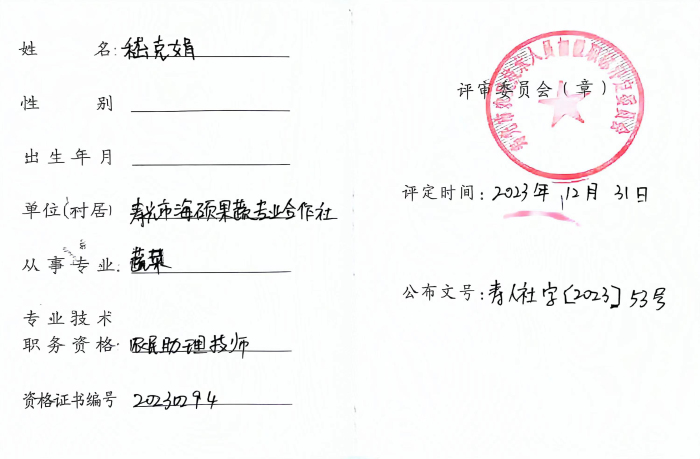 姓 名:嵇克娟
性 别
出生年月
单位(村居) 寿光市海硕果蔬专业合作社
从事专业: 蔬菜
专业技术
职务资格: 农民助理技师
资格证书编号 20230294
评审委员会(章)
评定时间: 2023年 12月 31日
公布文号: 寿人社字〔2023〕53号